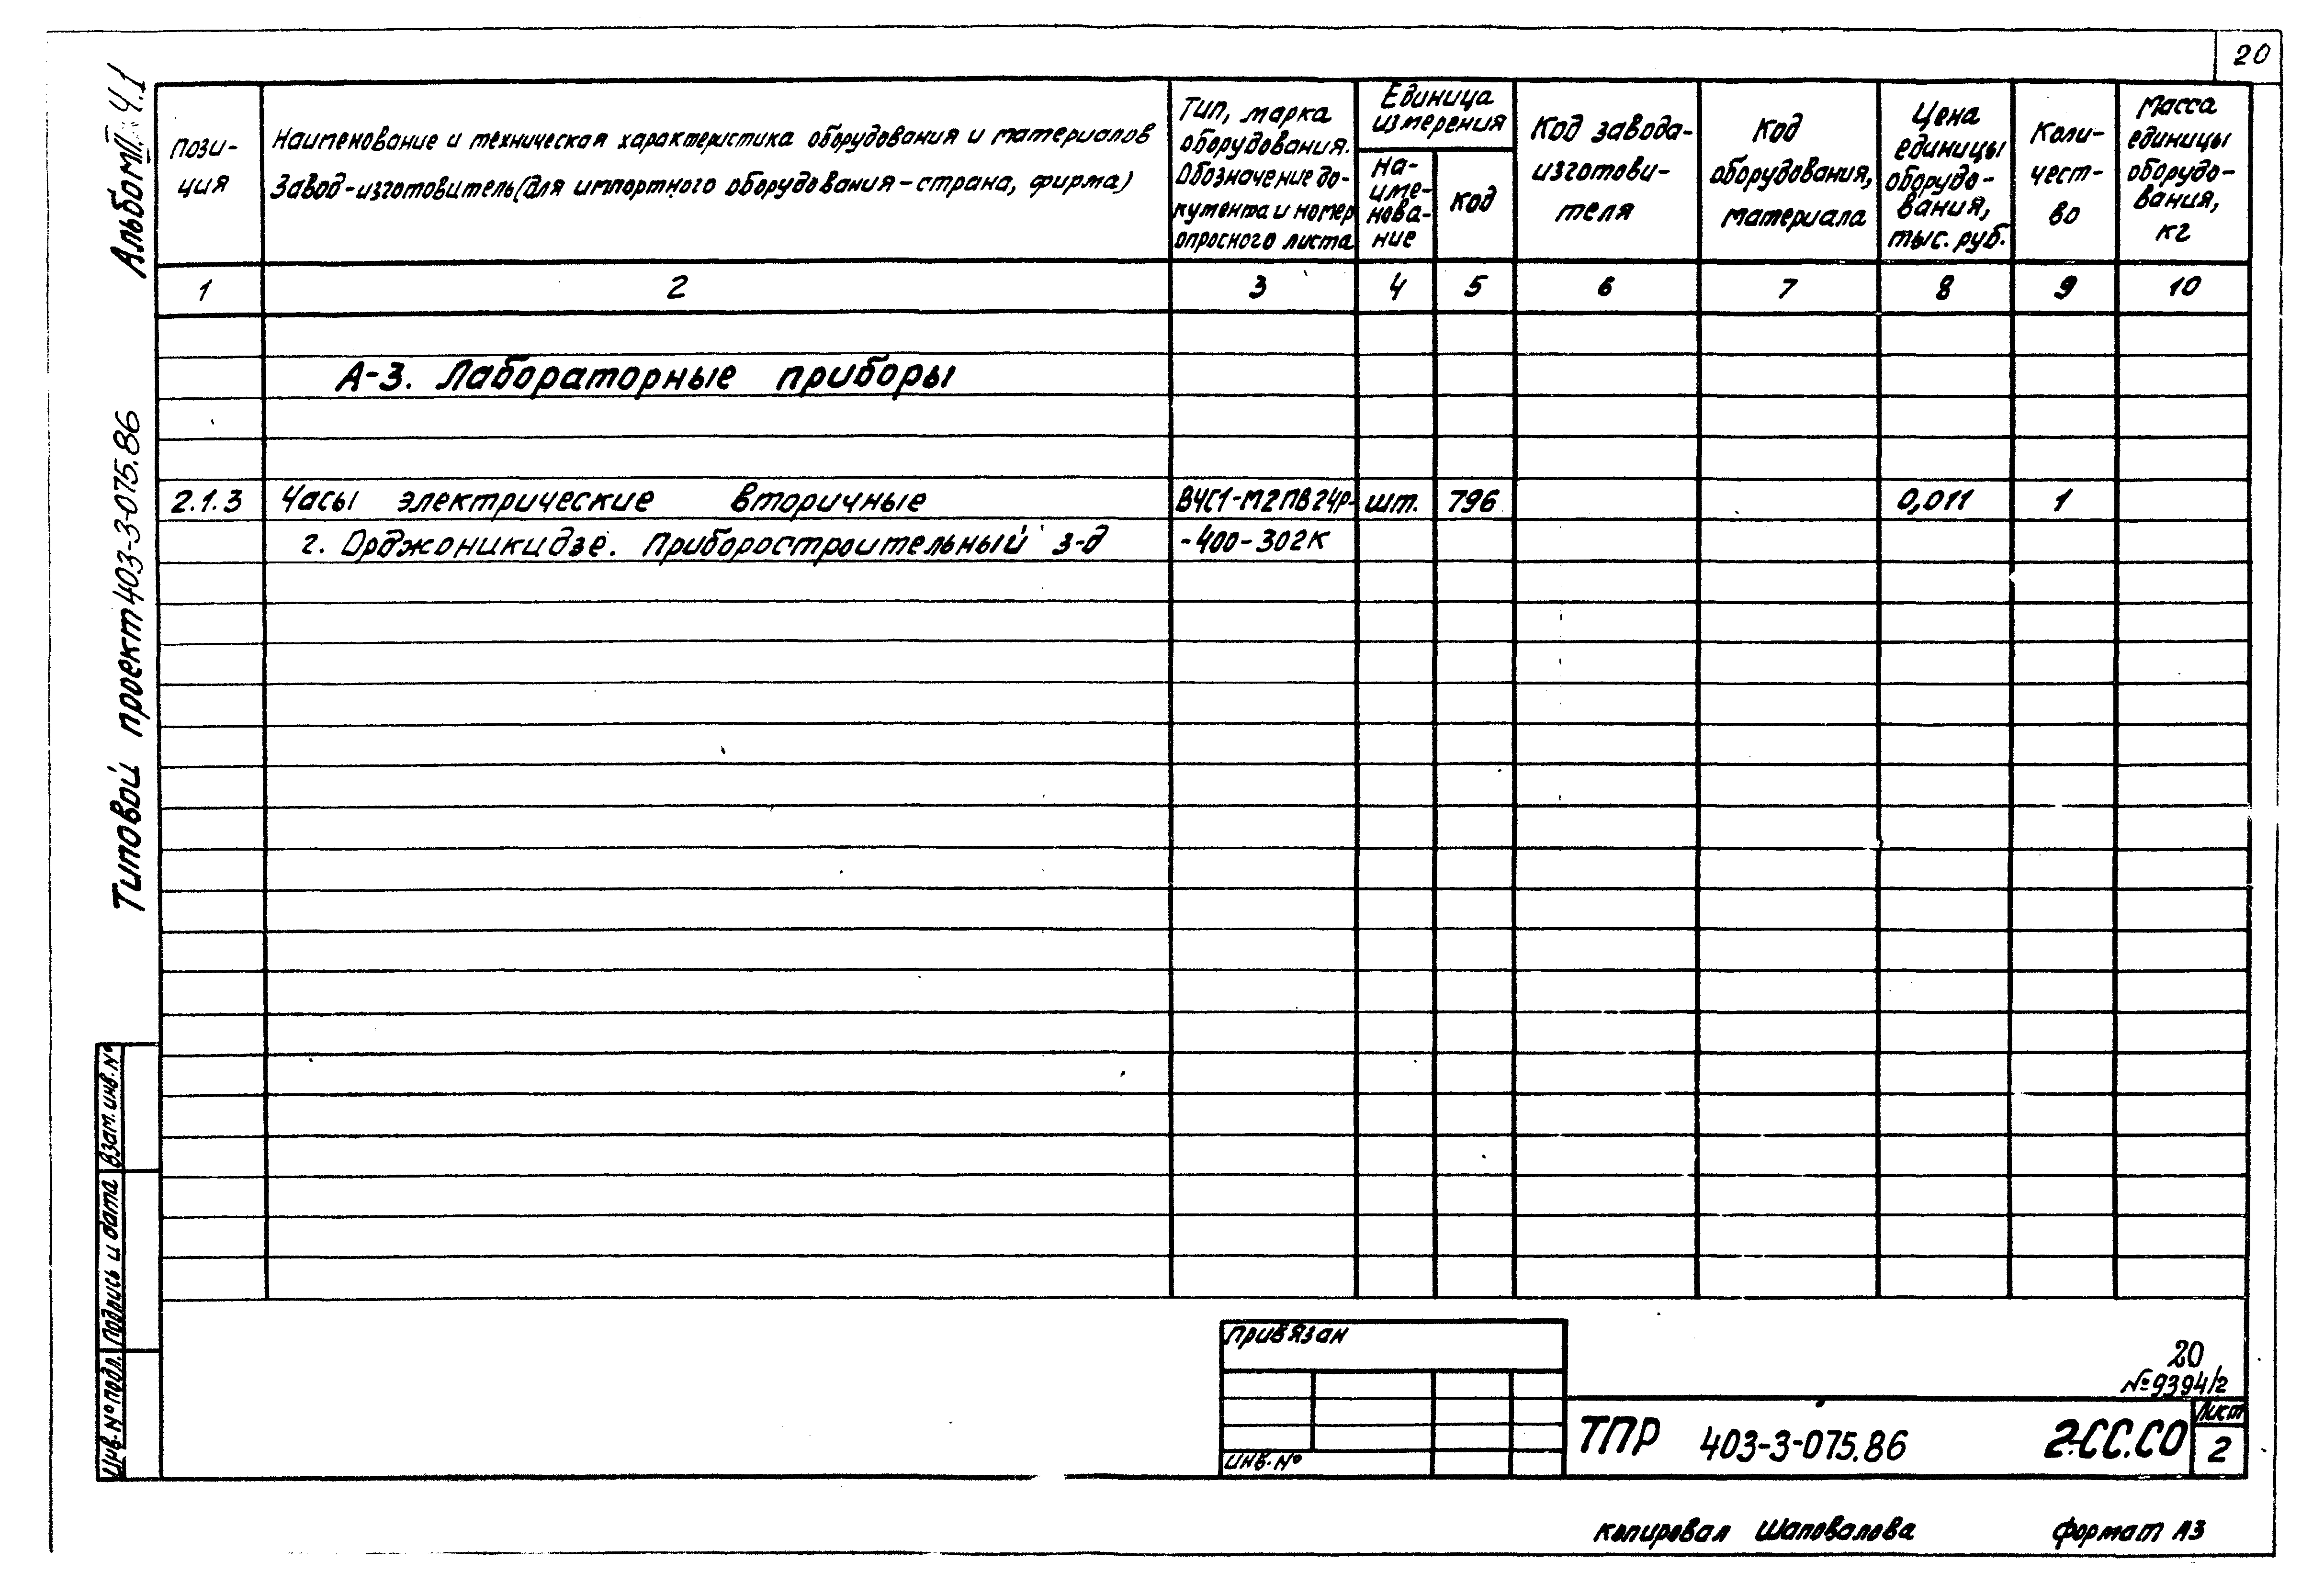 20
Альбом III. Ч.1
Типовой проект 403-3-075.86
Пози-
ция
Наименование и техническая характеристика оборудования и материалов
Завод-изготовитель (для импортного оборудования – страна, фирма)
Тип, марка
оборудования.
Обозначение до-
кумента и номер
опросного листа
Единица
измерения
На-
име-
нова-
ние
Код
Код завода-
изготови-
теля
Код
оборудования,
материала
Цена
единицы
оборудо-
вания,
тыс. руб.
Коли-
чест-
во
Масса
единицы
оборудо-
вания,
кг
1 2 3 4 5 6 7 8 9 10
А-3. Лабораторные приборы
2.1.3 Часы электрические вторичные ВЧС1-М2ПВ24Р- шт. 796 0,011 1
г. Орджоникидзе. Приборостроительный з-д -400-302К
Взам. инв. №
Подпись и дата
Инв. № подл.
Привязан
Инв. №
20
№9394/2
ТПР 403-3-075.86 2-СС.СО
Лист
2
Копировал Шаповалова Формат А3